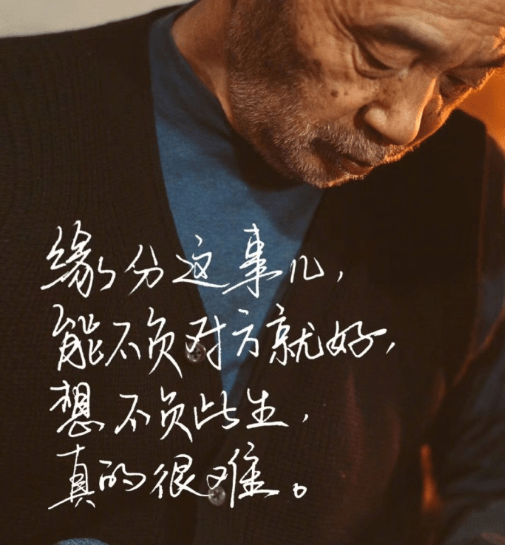 缘分这事儿,
能不负对方就好,
想不负此生,
真的很难。